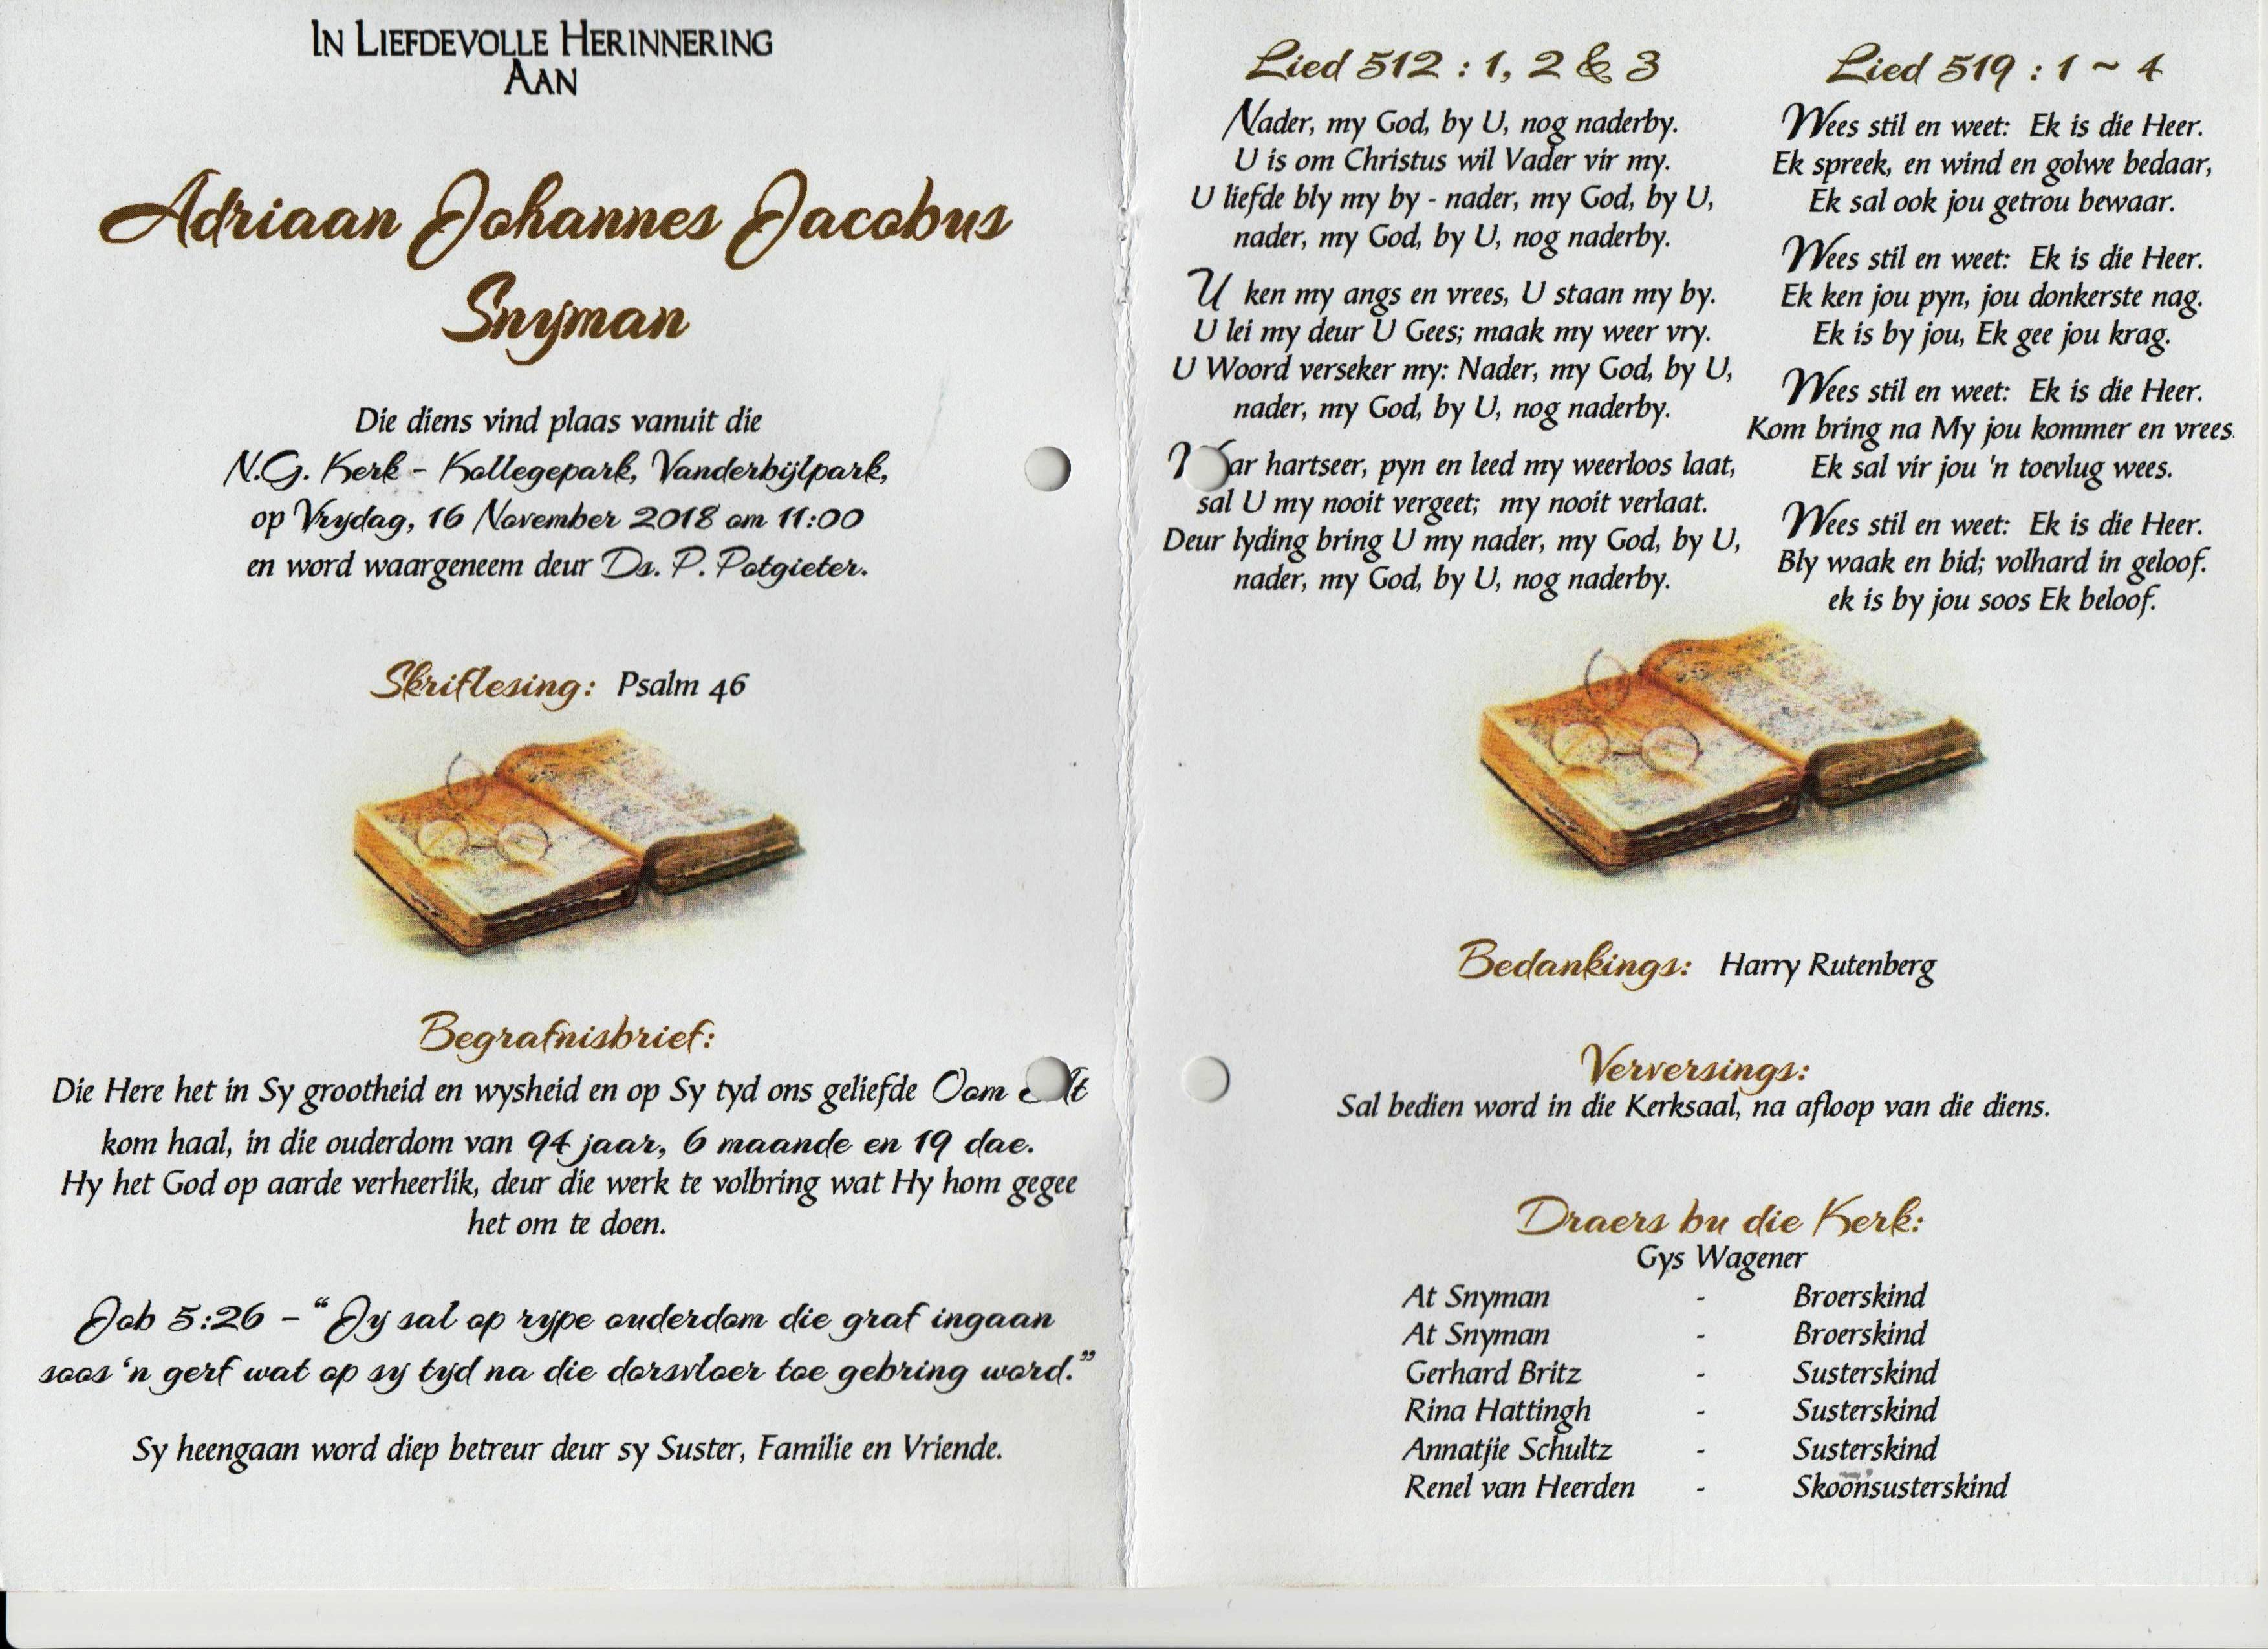 In Liefdevolle Herinnering
Aan
Adriaan Johannes Jacobus
Snyman
Die diens vind plaas vanuit die
N.G. Kerk - Kollegepark, Vanderbijlpark,
op Vrydag, 16 November 2018 om 11:00
en word waargeneem deur Ds. P. Potgieter.
Skriflesing: Psalm 46
Begrafnisbrief:
Die Here het in Sy grootheid en wysheid en op Sy tyd ons geliefde Oom
kom haal, in die ouderdom van 94 jaar, 6 maande en 19 dae.
Hy het God op aarde verheerlik, deur die werk te volbring wat Hy hom gegee
het om te doen.
Job 5:26 - “Jy sal op rype ouderdom die graf ingaan
soos ‘n gerf wat op sy tyd na die dorsvloer toe gebring word.”
Sy heengaan word diep betreur deur sy Suster, Familie en Vriende.
Lied 512 : 1, 2 & 3
Nader, my God, by U, nog naderby.
U is om Christus wil Vader vir my.
U liefde bly my by - nader, my God, by U,
nader, my God, by U, nog naderby.
U ken my angs en vrees, U staan my by.
U lei my deur U Gees; maak my weer vry.
U Woord verseker my: Nader, my God, by U,
nader, my God, by U, nog naderby.
hartseer, pyn en leed my weerloos laat,
sal U my nooit vergeet; my nooit verlaat.
Deur lyding bring U my nader, my God, by U,
nader, my God, by U, nog naderby.
Lied 519 : 1 ~ 4
Wees stil en weet: Ek is die Heer.
Ek spreek, en wind en golwe bedaar,
Ek sal ook jou getrou bewaar.
Wees stil en weet: Ek is die Heer.
Ek ken jou pyn, jou donkerste nag.
Ek is by jou, Ek gee jou krag.
Wees stil en weet: Ek is die Heer.
Kom bring na My jou kommer en vrees.
Ek sal vir jou 'n toevlug wees.
Wees stil en weet: Ek is die Heer.
Bly waak en bid; volhard in geloof.
ek is by jou soos Ek beloof.
Bedankings: Harry Rutenberg
Verversings:
Sal bedien word in die Kerksaal, na afloop van die diens.
Draers bu die Kerk:
Gys Wagener
At Snyman - Broerskind
At Snyman - Broerskind
Gerhard Britz - Susterskind
Rina Hattingh - Susterskind
Annatjie Schultz - Susterskind
Renel van Heerden - Skoonsusterskind